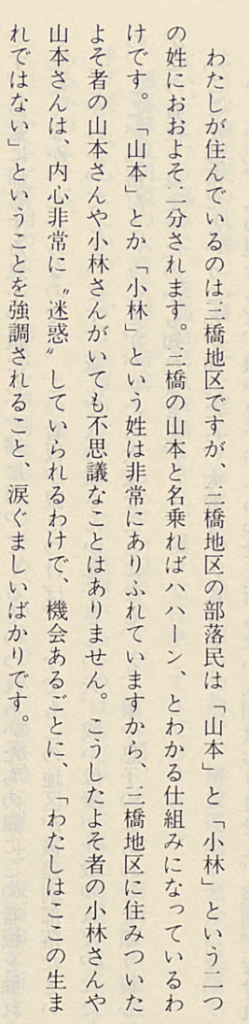 わたしが住んでいるのは三橋地区ですが、三橋地区の部落民は「山本」と「小林」という二つ
の姓におおよそ二分されます。三橋の山本と名乗ればハハーン、とわかる仕組みになっているわ
けです。「山本」とか「小林」という姓は非常にありふれていますから、三橋地区に住みついた
よそ者の山本さんや小林さんがいても不思議なことはありません。こうしたよそ者の小林さんや
山本さんは、内心非常に〝迷惑〟していられるわけで、機会あるごとに、「わたしはここの生ま
れではない」ということを強調されること、涙ぐましいばかりです。